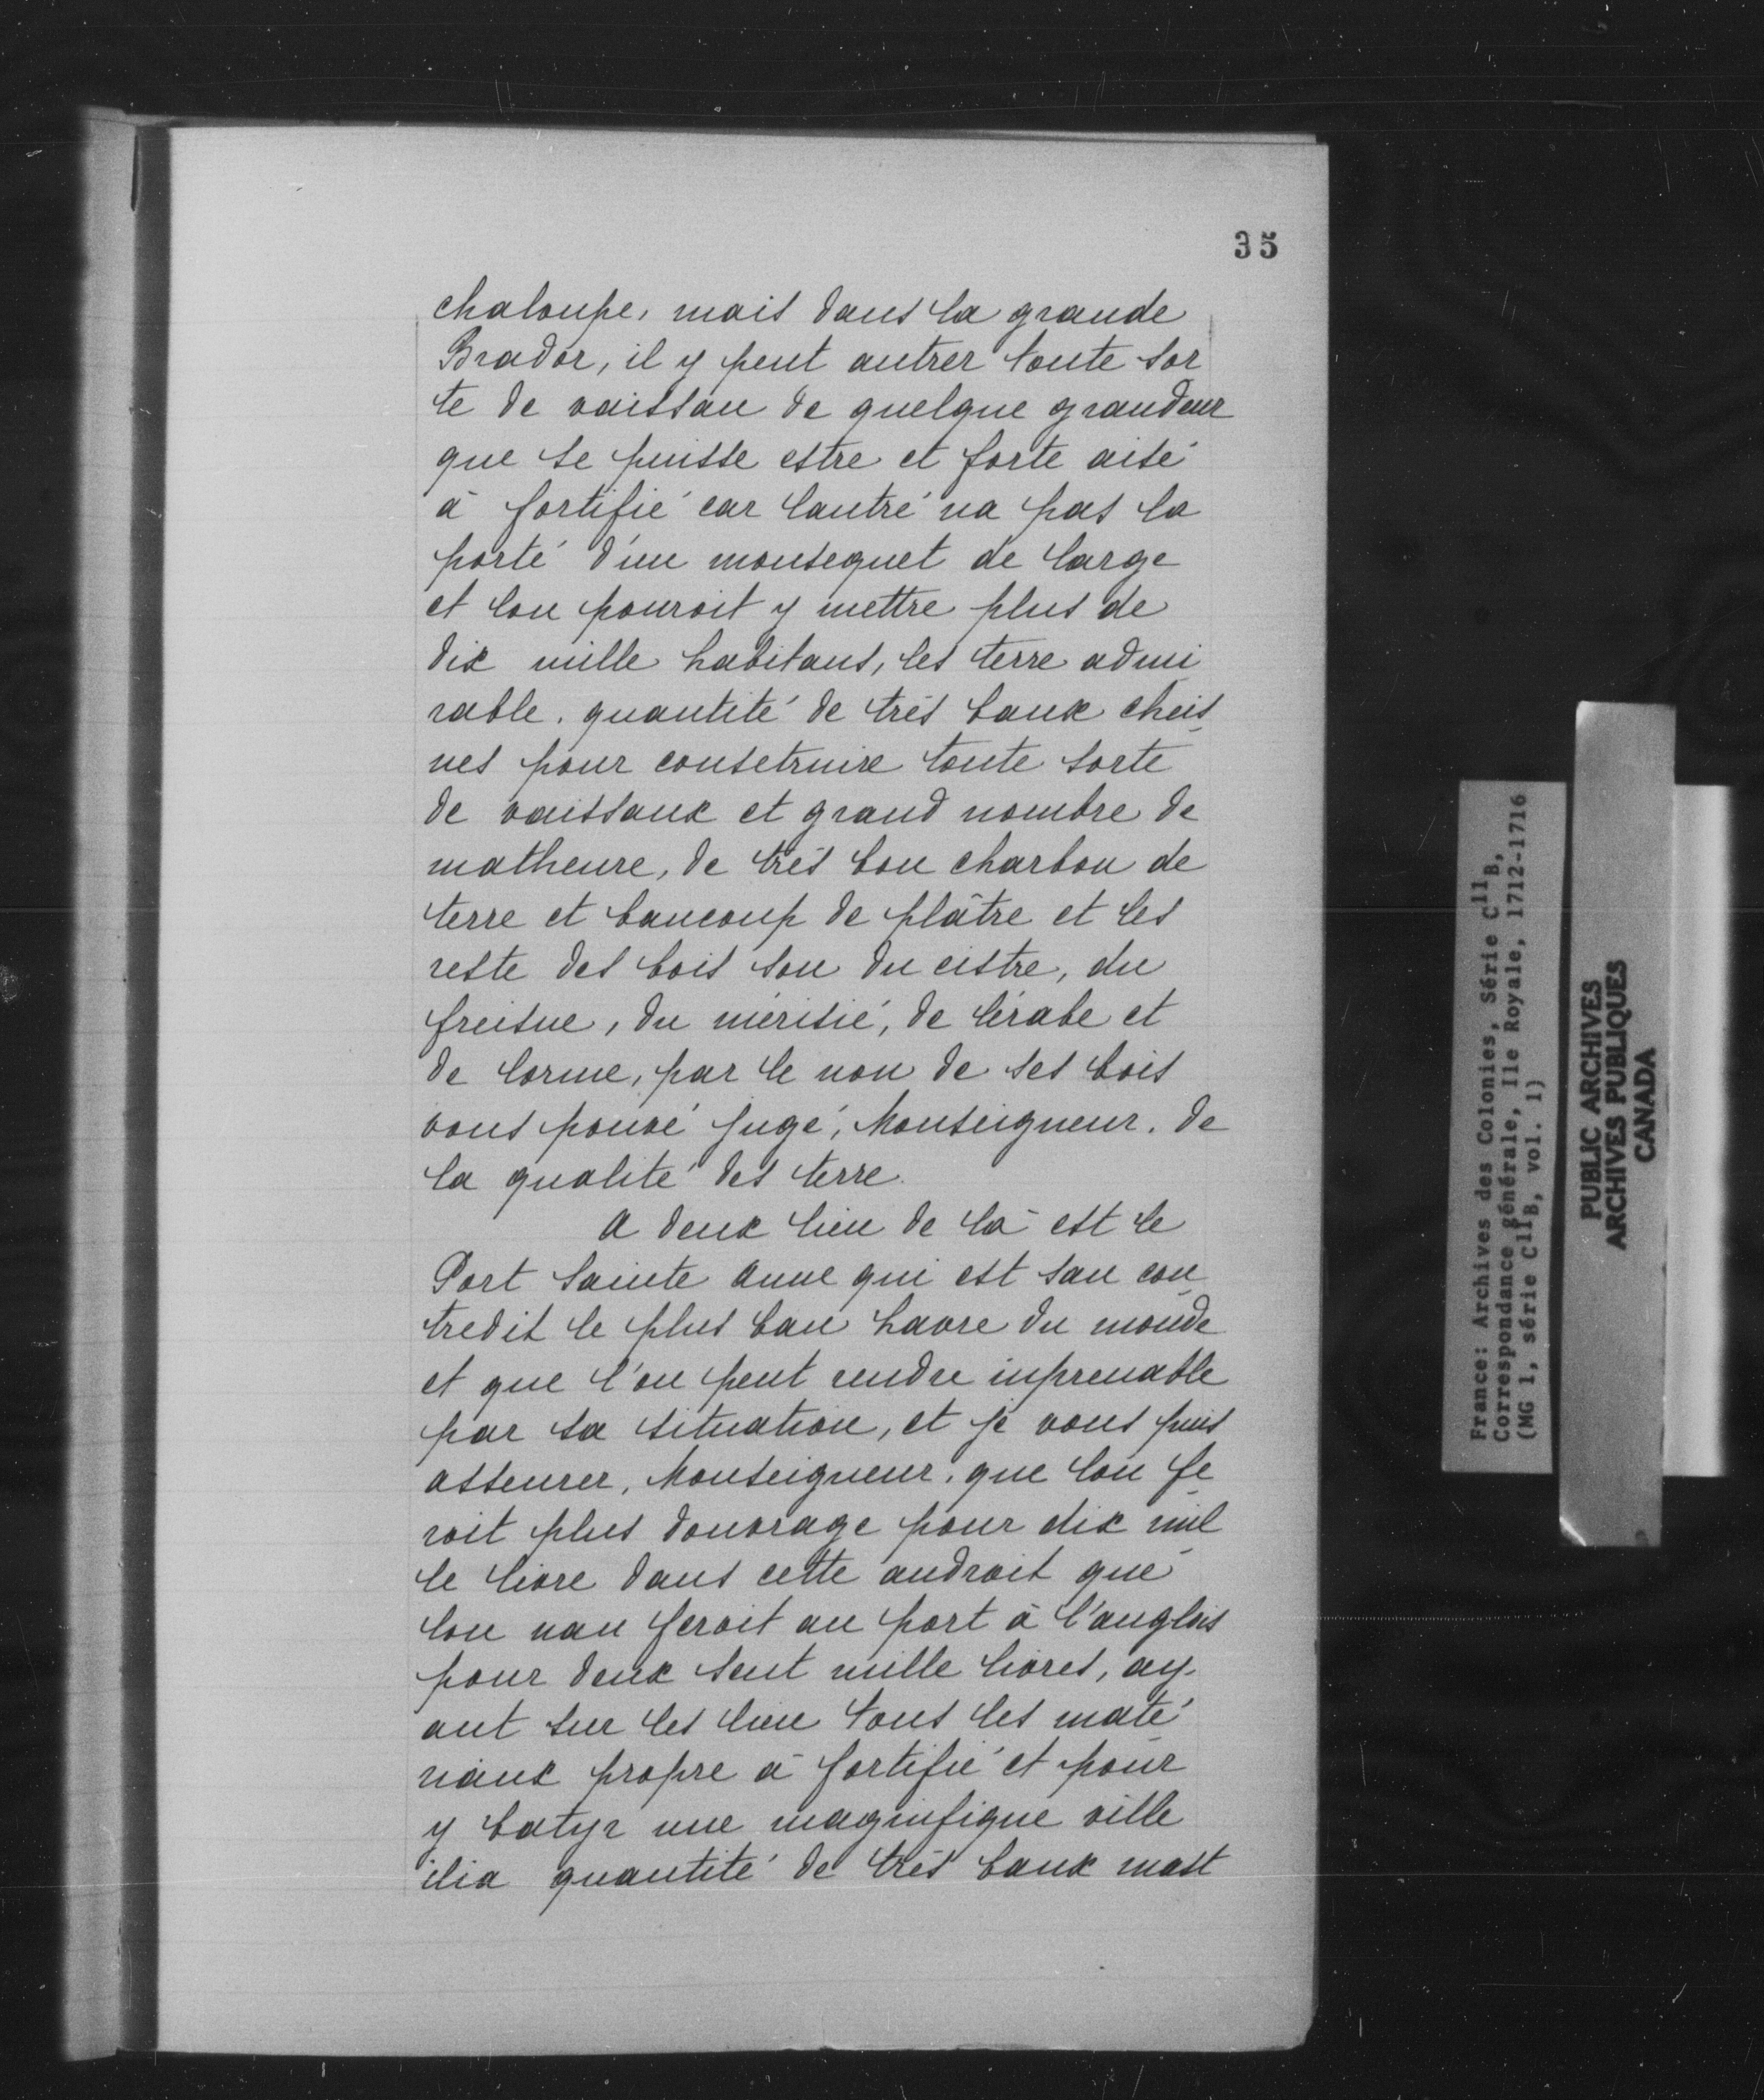 35
chaloupe, mais dans la grande
Brador, il y peut antrer toute sor
te de vaissau de quelque grandeur
que se puisse estre et forte aisé
à fortifié car lautré na pas la
porté d'un mousequet de large
et lon pouroit y mettre plus de
dix mille habitans, les terre admi
rable, quantité de très baux cheis
nes pour consetruire toute sorte
de vaissaux et grand nombre de
matheure, de très bon charbon de
terre et baucoup de plâtre et les
reste des bois son du eistre, du
freisne, du mérisié, de lérabe et
de lorme, par le non de ses bois
vous pouvé jugé, Monseigneur, de
la qualité des terre.
A deux lieu de là est le
Port Sainte Anne qui est san con
tredit le plus bau havre du monde
et que l'on peut rendre inprenable
par sa situation, et je vous puis
asseurer, Monseigneur, que lon fe
roit plus douvrage pour dix mil
le livre dans cette androit que
lon nan feroit au port à l'anglois
pour deux sent mille livres, ay-
ant sur les lieu tous les maté
riaux propre à fortifié et pour
y batyr une magnifique ville
ilia quantité de très baux mast
France: Archives des Colonies, Série C11B,
Correspondance générale, Ile Royale, 1712-1716
(MG 1, série C11B, vol. 1)
PUBLIC ARCHIVES
ARCHIVES PUBLIQUES
CANADA